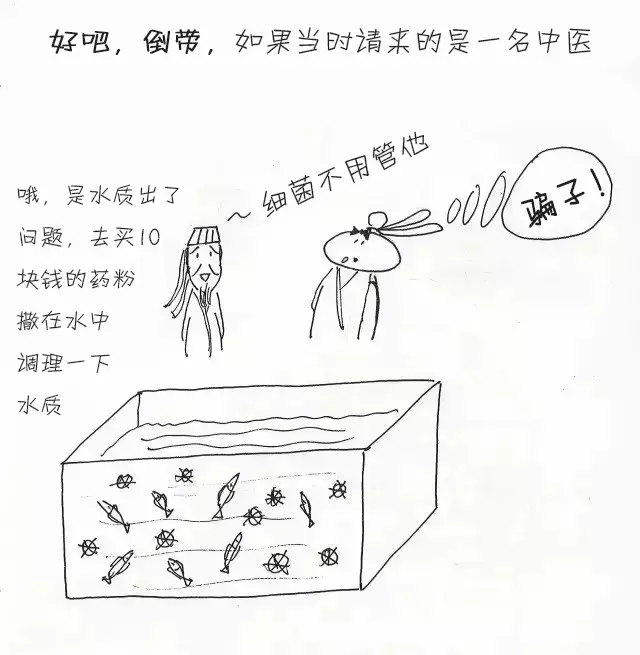 好吧，倒带，如果当时请来的是一名中医
哦，是水质出了
问题，去买10
块钱的药粉
撒在水中
调理一下
水质
～细菌不用管他
骗子！